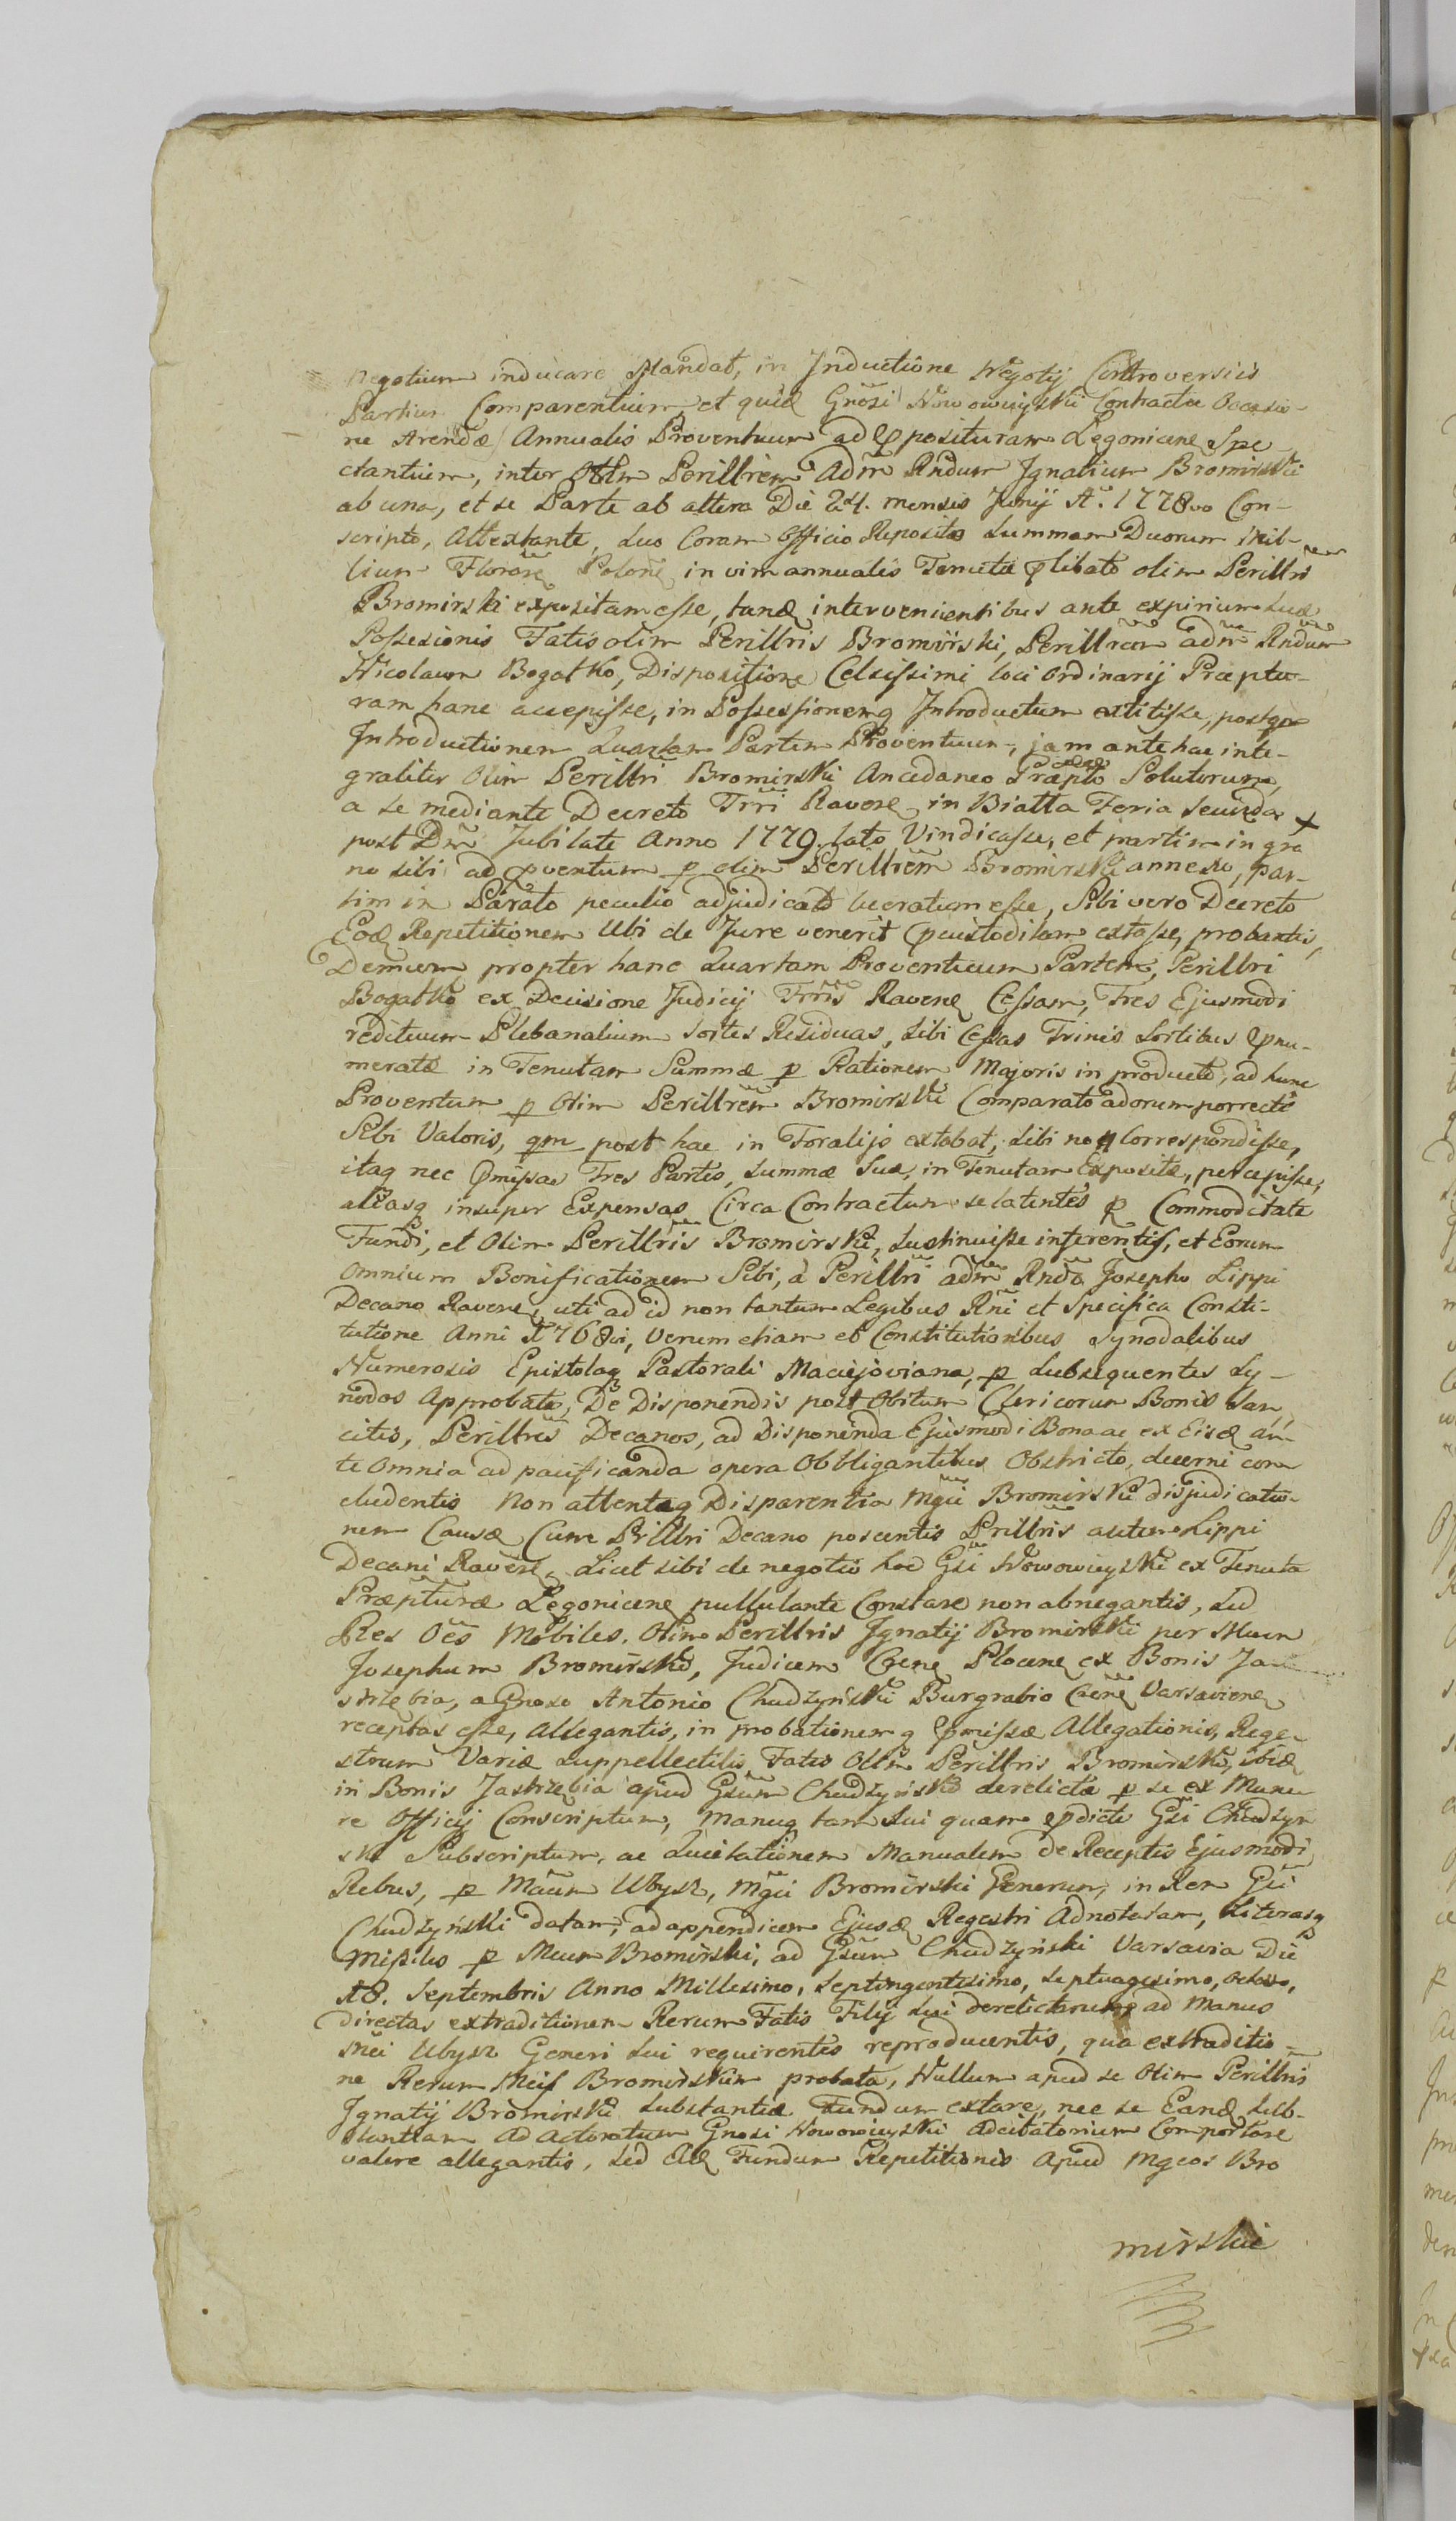 negotium inducare Mandat, in Inductione Negotij Controversiis
Partium Comparentium, et quid Gnosi Nowowieyski Contractu Occasio-
ne Arendæ Annualis Proventuum ad Pposituram Legonicens Spe
ctantium, inter Olim Perillrem Adm Rndum Ignatium Bromirski
ab una, et se Parte ab altera Die 24. mensis Junij A. 1778vo Con-
scripto, Attestante, suo Coram Officio Reposito Summam Duorum Mil-
lium Floren Polon in vim annualis Tenutæ plibato olim Perillri
Bromirski expositam esse, tand intervenientibus ante expirium suæ
Possesionis Fatis olim Perillris Bromirski, Perillrem adm Rndum
Nicolaum Bogatko, Dispositione Celsissimi loci Ordinarij Præptu-
ram hanc accepisse, in Possessionemq Introductum extitisse, postq
Introductionem Quartam Partem Proventuum, jam antehac inte-
graliter Olim Perillri Bromirski Ancedaneo Præpto Solutorum,
a se mediante Decreto Trri Ravens in Bialla Feria Secunda
post Dm Jubilate Anno 1779. lato Vindicasse, et partim in gra
no sibi ad pventum p olim Perillrem Bromirski annexo, par-
tim in Parato peculio adjudicato lucratum esse, Sibi vero Decreto
Eod Repetitionem Ubi de Jure venerit pcustoditam extasse, probantis,
Demum propter hanc Quartam Proventuum Partem, Perillri
Bogatko ex Decisione Judicij Trris Ravens Cessam, Tres Ejusmodi
redituum Plebanalium Sortes Residuas, Sibi Cessas Trinis Sortibus Pnu-
meratæ in Tenutam Summæ p Rationem Majoris in producto, ad hunc
Proventum p Olim Perillrem Bromirski Comparato adorum porrecti
Sibi Valoris, qm post hac in Foralijs extabat, Sibi non Correspondisse,
itaq nec Pmissas Tres Partes, Summæ Suæ, in Tenutam Expositæ, percepisse,
aliasq insuper Expensas Circa Contractum se latentes p Commoditate
Fundi, et Olim Perillris Bromirski, Sustinuisse inferentis, et Eorum
Omnium Bonificationem Sibi, à Perillri adm Rndo Josepho Lippi
Decano Ravens, uti ad id non tantum Legibus Rni et Specifica Consti-
tutione Anni 1768vi, Verum etiam et Constitutionibus Synodalibus
Numerosis Epistolaq Pastorali Maciejoviana, p Subsequentes Sy-
nodos Approbata, De Disponendis post Obitum Clericorum Bonis San-
citis, Perillres Decanos, ad Disponenda Ejusmodi Bona ac ex Eisd an-
te Omnia ad pacificanda opera Obbligantibus Obstricto, decerni con
cludentis Non attentaq Disparentia Mgci Bromirski disjudicatio-
nem Causæ Cum Prillri Decano poscentis Prillris autem Lippi
Decani Ravens, Licet sibi de negotio hoc Gsi Nowowieyski ex Tenuta
Præpturæ Legonicens pullulante Constare non abnegantis, Sed
Res Oes Mobiles. Olim Perillris Ignatij Bromirski per Mcum
Josephum Bromirski, Judicem Cens Plocens ex Bonis Ja
strzębia, a Gnoso Antonio Chudzyński Burgrabio Cens Varsaviens
receptas esse, Allegantis, in probationemq Pmissæ Allegationis, Rege-
strum Variæ Suppellectilis Fatis Olim Perillris Bromirski, ibid
in Bonis Jastrzębia apud Gsum Chudzyński derelictæ p se ex Mune
re Officij Conscriptum, Manuq tam Sui quam pdicti Gsi Chudzyn
ski Subscriptum, ac Quietationem Manualem De Receptis Ejusmodi
Rebus, p Mcum Ubysz, Mgci Bromirski Generum, in Rem Gsi
Chudzyński datam, ad appendicem Ejusd Regestri Adnotatam, Literasq
Missiles p Mcum Bromirski, ad Gsum Chudzyński Varsavia Die
18. Septembris Anno Millesimo, Septingentesimo, Septuagesimo, octavo,
Directas extraditionem Rerum Fatis Filij Sui derelictarum ad Manus
Mci Ubysz Generi Sui requirentes reproducentis, qua extraditio-
ne Rerum Mcis Bromirskim probata, Nullum apud se Olim Perillris
Ignatij Bromirski Substantiæ Fundum extare, nec se Eand Sub-
stantiam ad actoratum Gnosi Nowowieyski adcitatorium Comportare
valere allegantis, Sed Fundum Repetitionis apud Mgcos Bro
mirskie